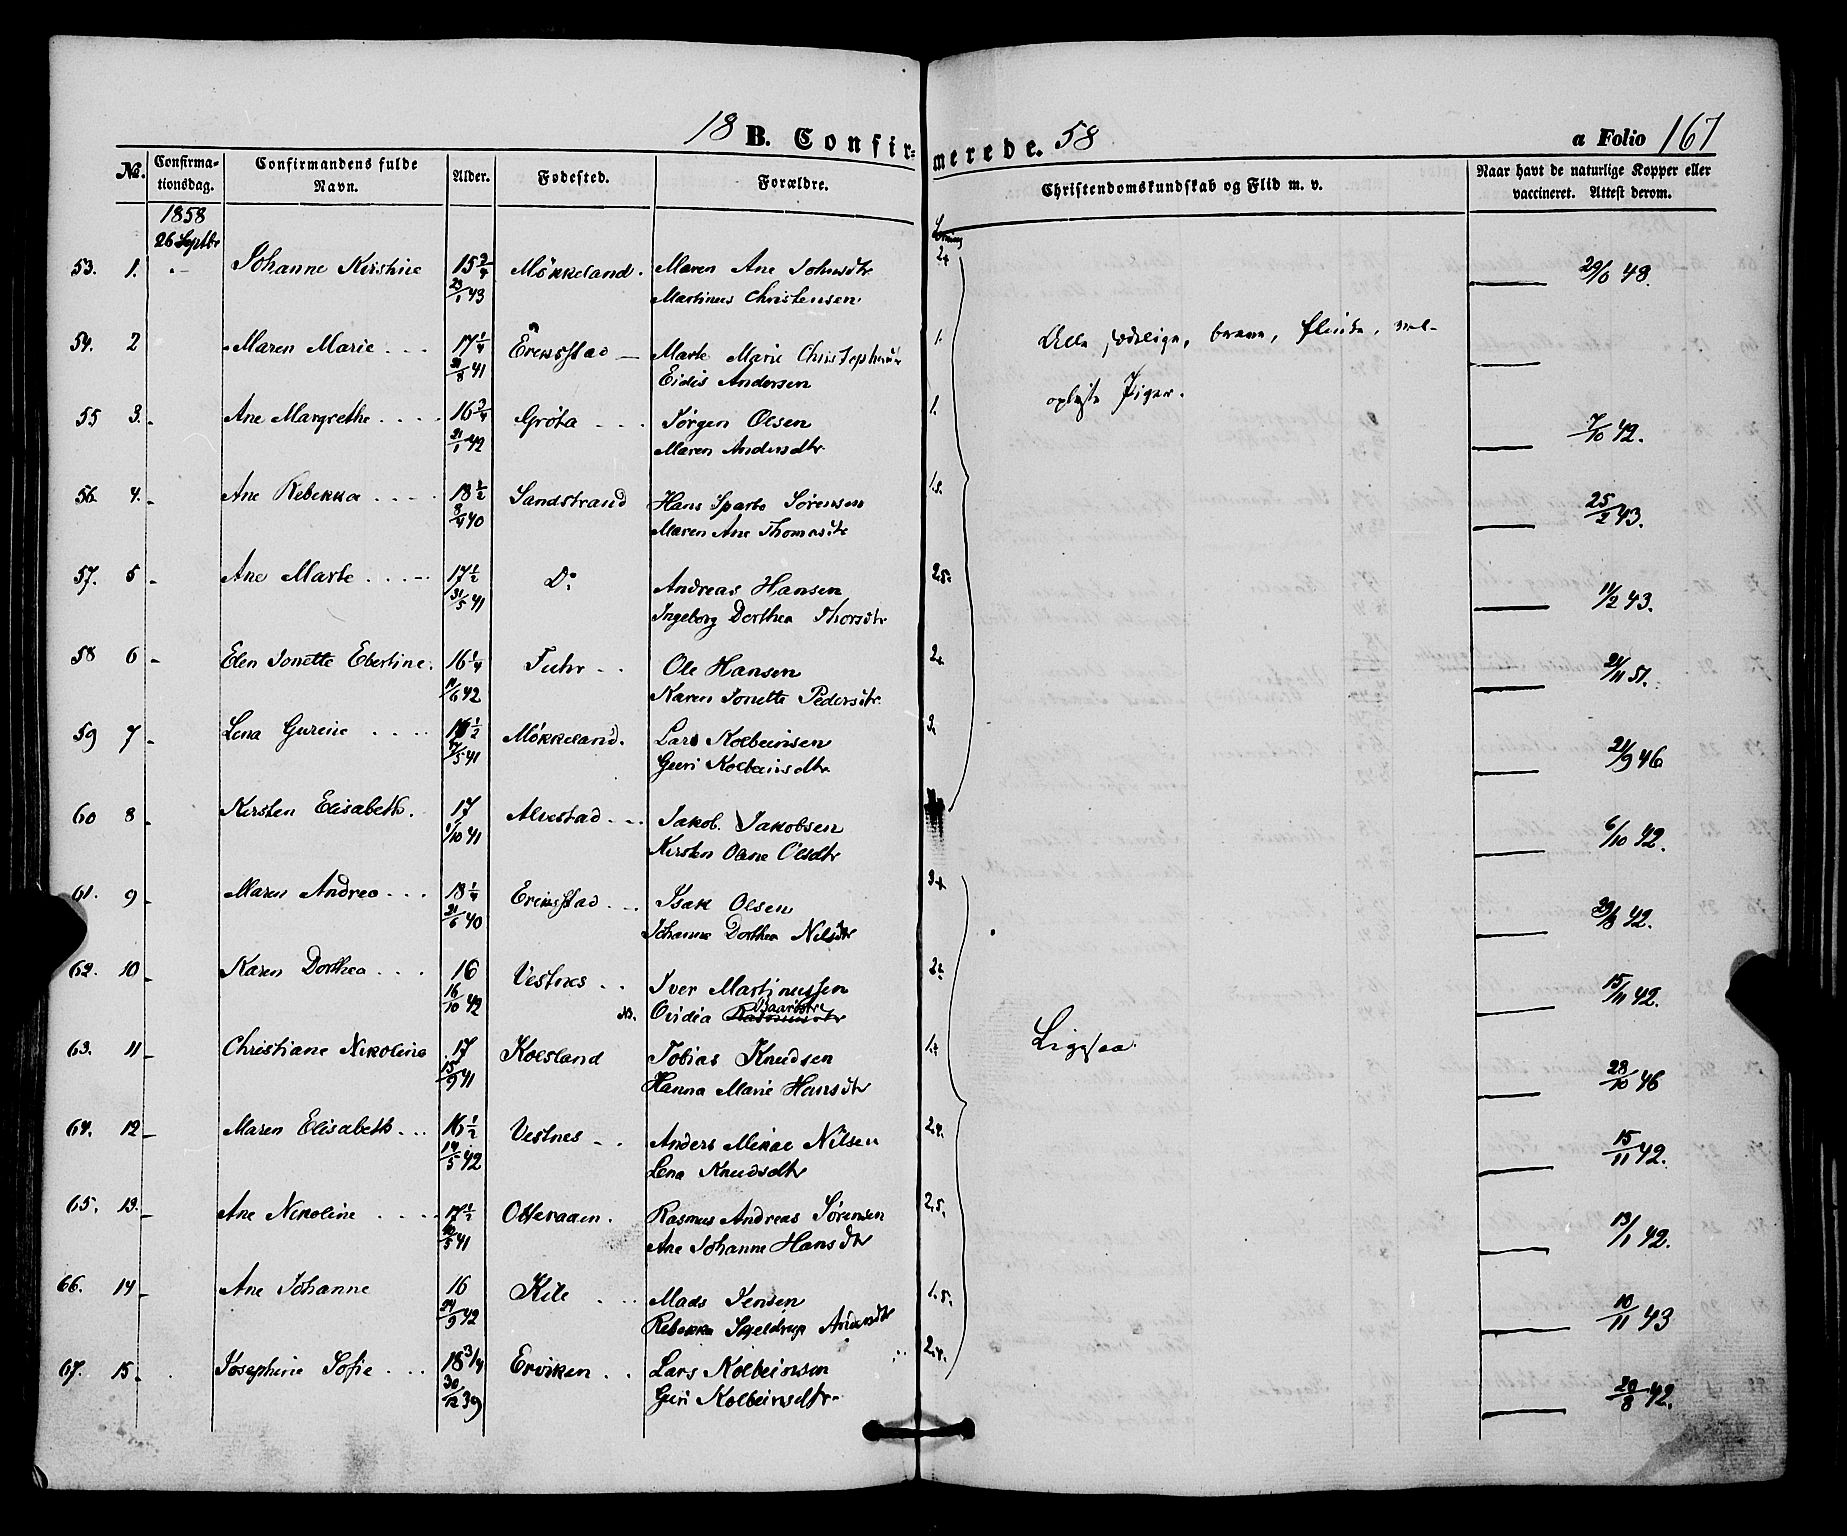 18 B. Confir- merede. 58 a Folio 167
No. Confirma- tionsdag. Confirmandens fulde Navn. Alder. Fødested. Forældre. Christendomskundskab og Flid m. v. Naar havt de naturlige Kopper eller vaccineret. Attest derom.
1858
26 Septbr
53. 1. Johanne Kirstine 15 3/4 Møkkeland. Maren Ane Johnsdtr 2+ 29/8 48.
1/43 Martinus Christensen
54. 2 Maren Marie 17 1/4 Erikstad Marte Marie Christophersdtr 1. Alle sædelige, brave, flinke, vel-
31/8 41 Eidis Andersen
oplyste Piger.
55 3. Ane Margrethe 16 3/4 Grøta Jørgen Olsen 1. 7/10 42.
21/1 42 Maren Andersdtr
56. 4. Ane Rebekka 18 1/2 Sandstrand Hans Sparbo Sørensen 1.5. 25/2 43.
8/4 40 Maren Ane Thomasdtr
57. 5 Ane Marte 17 1/2 Do. Andreas Hansen 2.5. 11/2 43.
31/5 41 Ingeborg Dorthea Thorsdtr
58 6 Elen Jonette Ebertine 16 1/4 Fuhr Ole Hansen 2+ 21/11 51.
11/6 42 Karen Jonetta Pedersdtr
59 7 Lena Gurine 16 1/2 Møkkeland. Lars Kolbeinsen 3. 21/9 46
17/5 41 Guri Kolbeinsdtr
60 8 Kirsten Elisabeth. 17 Alvestad Jakob Jakobsen 6/10 42.
1/10 41 Kirsten Oline Olsdtr
61. 9 Maren Andrea 18 1/4 Erikstad Isak Olsen 3+ 29/8 42.
21/6 40 Johanna Dorthea Nilsdtr
62. 10 Karen Dorthea 16 Vestnes Iver Martinussen 2+ 15/11 42.
16/10 42 Nb. Ovidia Baardsdtr
63. 11 Christiane Nikoline 17 Kolsland Tobias Knudsen 1.+ Ligesaa. 28/10 46
15/9 41 Hanna Marie Hansdtr
64. 12 Maren Elisabeth 16 1/2 Vestnes Anders Mikal Nilsen 2.+. 15/11 42.
14/5 42 Lena Knudsdtr
65. 13. Ane Nikoline 17 1/2 Otteraaen. Rasmus Andreas Sørensen 2.5. 13/1 42.
10/5 41 Ane Johanne Hansdtr
66. 14 Ane Johanne 16 Kile Mads Jensen 1.5. 10/11 43
24/9 42 Rebekka Skjeldrup
67. 15 Josephine Sofie 18 3/4 Erviken Lars Kolbeinsen 2.+. 20/8 42.
30/12 39 Guri Kolbeinsdtr